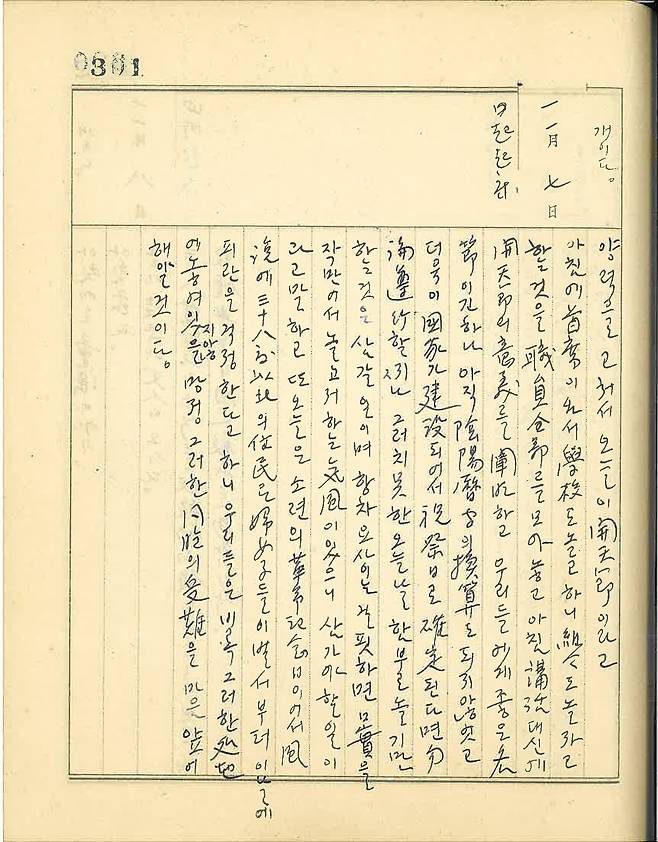 301
개이다。
一一月 七日
양력으로 고쳐서 오늘이 開天節이라고
아침에 首席이 와서 學校도 놀고 하니 組合도 놀자고
할 것을 職員全部를 모아 놓고 아침 講話 대신에
開天節의 意義를 闡明하고 우리들에게 좋은 名
節이긴 하나 아직 陰陽曆 의 換算도 되지 않엇고
더욱이 國家가 建設되여서 祝祭日로 確定된다면 勿
論 遵行할 지나 그러치 못한 오늘날 한부로 놀기만
하는 것은 삼갈 일이며 황차 모상이는 걸핏하면 口實을
작만어서 놀고저 하는 氣風이 있으니 삼가야 할 일이
라고 말하고 또 오늘은 소련의 革命記念日이어서 風
說에 三十八度以北의 住民은 婦女子들이 벌서부터 입군에
피란을 걱정한다고 하니 우리들은 비록 그러한 處地
에 놓여 잇지 않을 망정 그러한 同胞의 受難을 마음 앞에
해야 할 것이다。